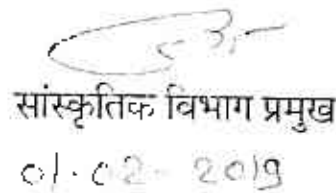 सांस्कृतिक विभाग प्रमुख
01.02-2019